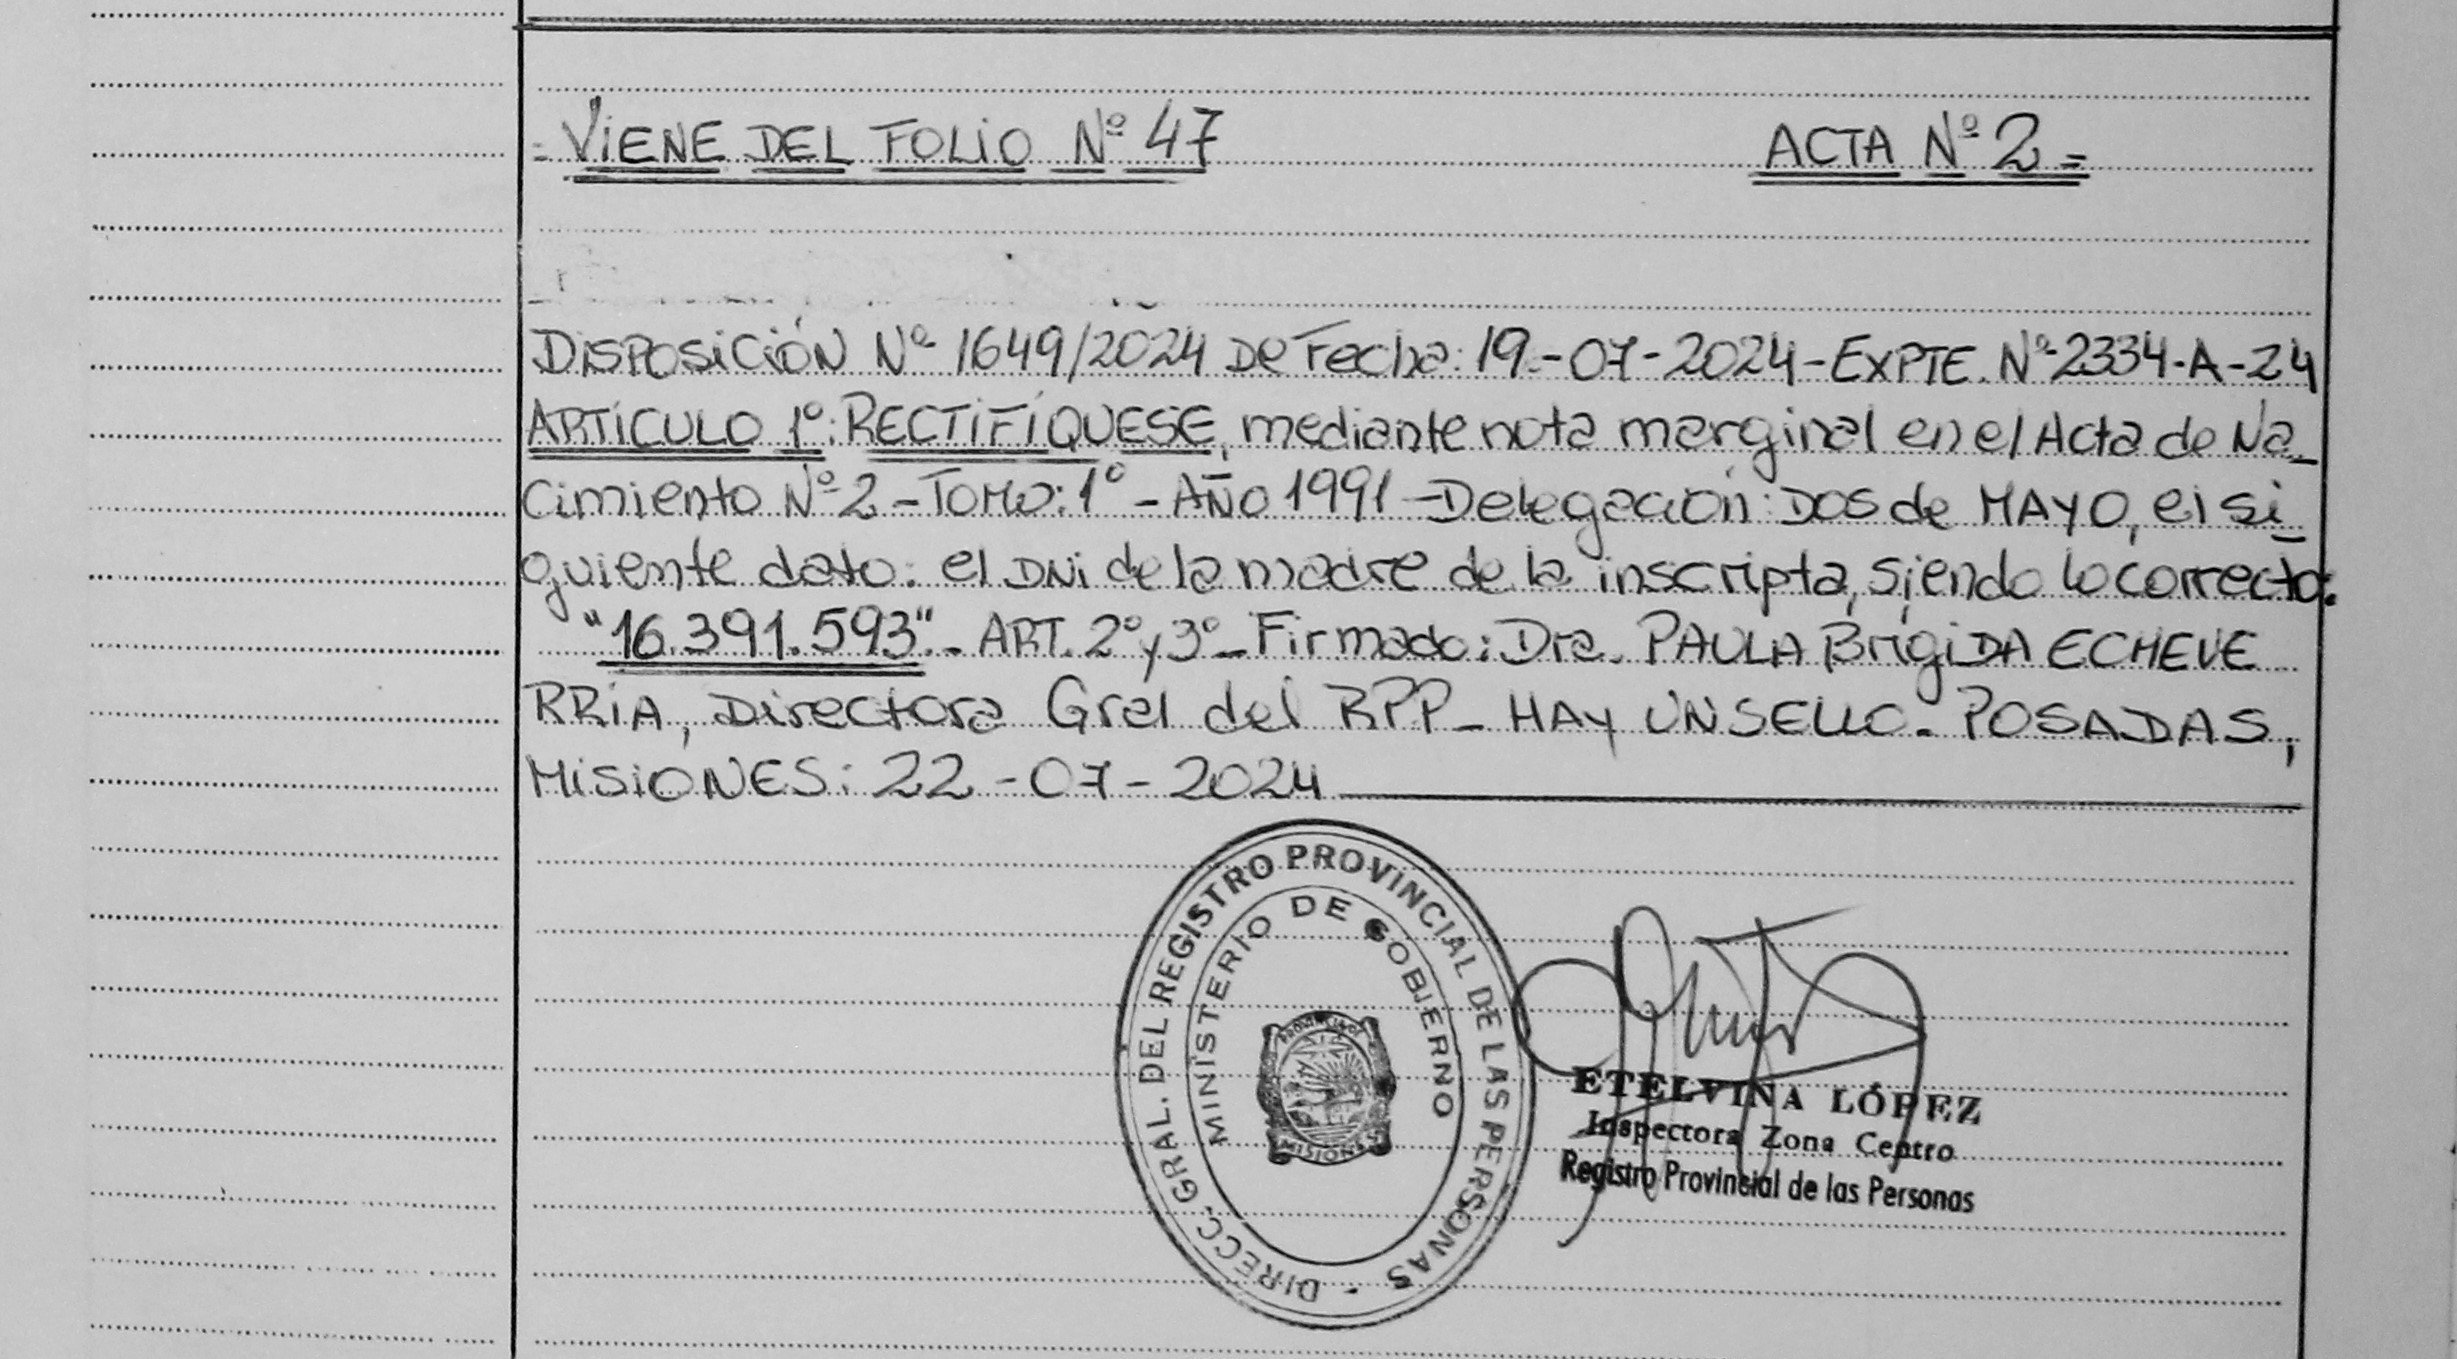 = VIENE DEL FOLIO Nº 47 ACTA Nº 2 =
DISPOSICIÓN Nº 1649/2024 De Fecha: 19-07-2024-EXPTE. Nº 2334-A-24
ARTÍCULO 1º: RECTIFÍQUESE, mediante nota marginal en el Acta de Na_
cimiento Nº 2 - Tomo: 1º - AÑO 1991 - Delegación: DOS de MAYO, el si_
guiente dato: el DNI de la madre de la inscripta, siendo lo correcto:
"16.391.593".- ART. 2º y 3º - Firmado: Dra. PAULA BrígIDA ECHEVE
RRÍA, Directora Gral del RPP - HAY UN SELLO. POSADAS,
MISIONES: 22-07-2024
DIRECC. GRAL. DEL REGISTRO PROVINCIAL DE LAS PERSONAS
MINISTERIO DE GOBIERNO
PROVINCIA DE
MISIONES
ETELVINA LÓPEZ
Inspectora Zona Centro
Registro Provincial de las Personas